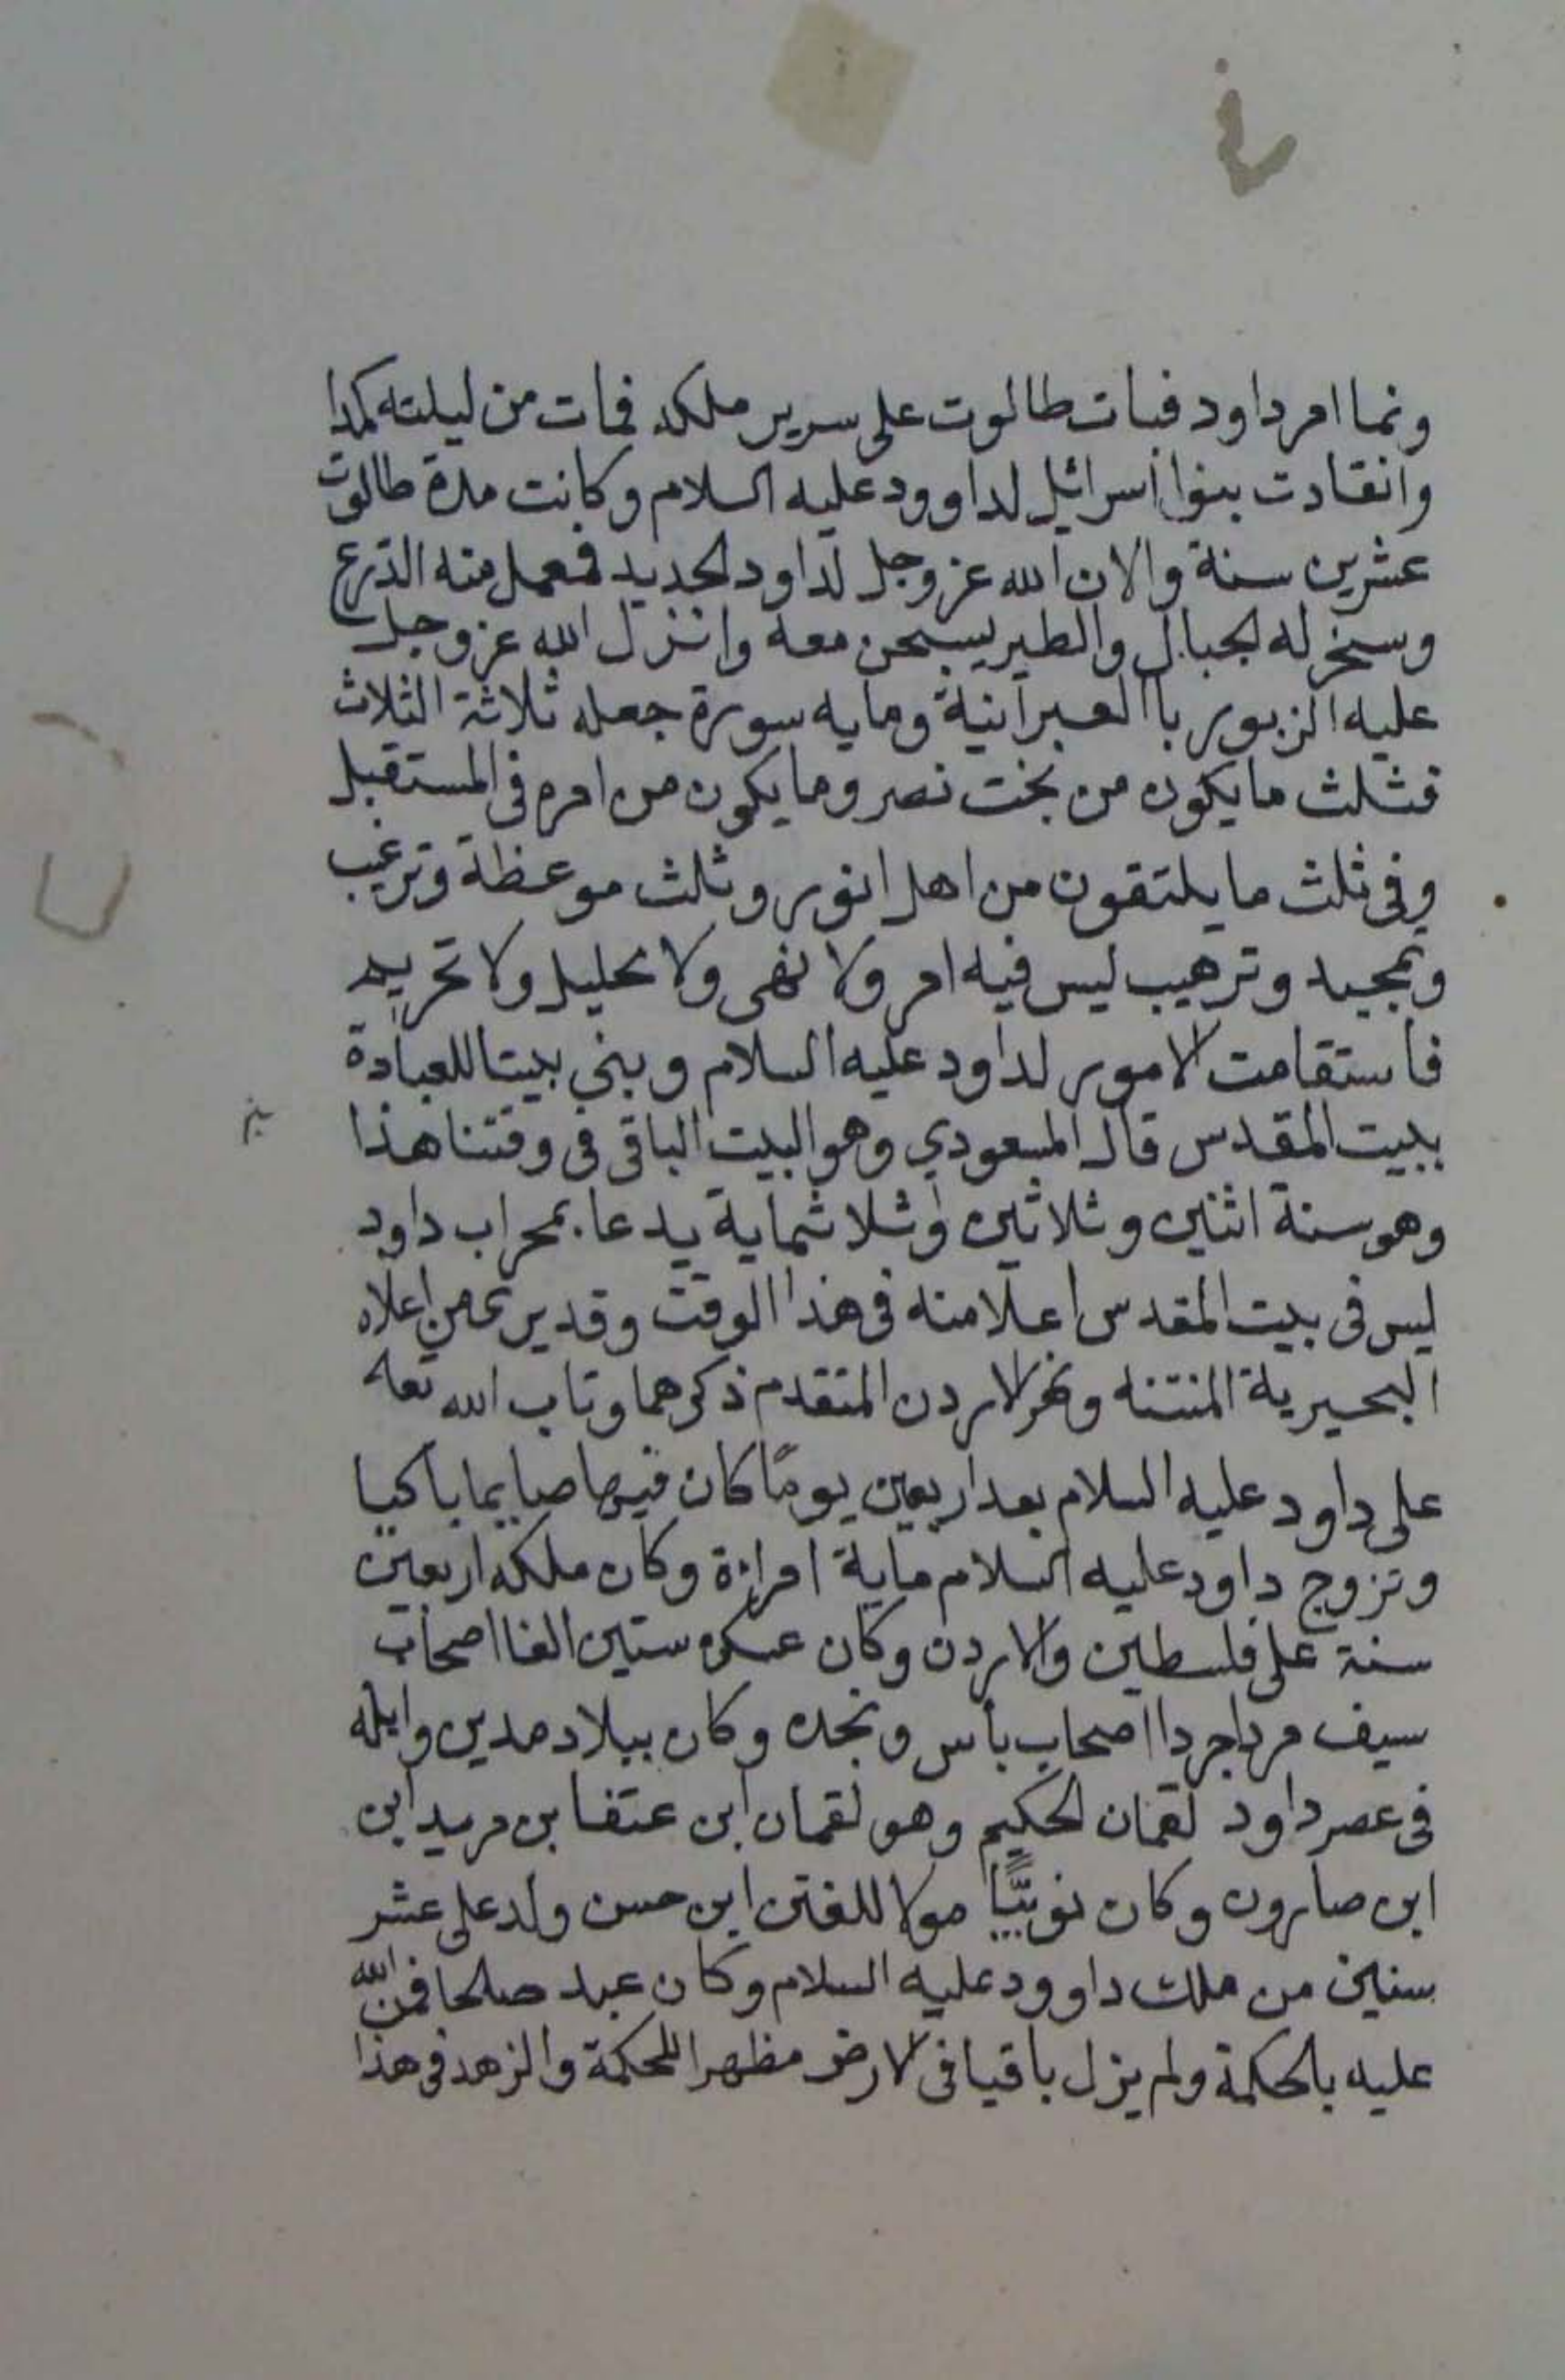 ونما امر داود فبات طالوت على سرير ملكه فمات من ليلته كمدا
وانقادت بنوا اسرائيل لداوود عليه السلام وكانت مدة طالوت
عشرين سنة والان الله عز وجل لداود الحديد فعمل منه الدرع
وسخر له الجبال والطير يسبحن معه وانزل الله عز وجل
عليه الزبور باالعبرانية ومايه سورة جعله ثلاثة اثلاث
فثلث ما يكون من بخت نصر وما يكون من امره في المستقبل
وفي ثلث ما يلتقون من اهل اثور وثلث موعظة وترغيب
وتمجيد وترهيب ليس فيه امر ولا نهى ولا تحليل ولا تحريم
فاستقامت الامور لداود عليه السلام وبنى بيتا للعبادة
ببيت المقدس قال المسعودي وهو البيت الباقي في وقتنا هذا
وهو سنة اثنين وثلاثين وثلاثماية يدعا بمحراب داود
ليس في بيت المقدس اعلا منه في هذا الوقت وقد يرى من اعلاه
البحيرية المنتنه ونهر الاردن المتقدم ذكرهما وتاب الله تعا
على داود عليه السلام بعد اربعين يومًا كان فيها صايما باكيا
وتزوج داود عليه السلام ماية امراءة وكان ملكه اربعين
سنة على فلسطين والاردن وكان عسكره ستين الفا اصحاب
سيف مردا جردا اصحاب بأس ونجده وكان ببلاد مدين وايله
في عصر داود لقمان الحكيم وهو لقمان ابن عنقا بن مريد ابن
ابن صارون وكان نوبيًّا مولا للقين ابن حسن ولد على عشر
سنين من ملك داوود عليه السلام وكان عبد صالحا فمن الله
عليه بالحكمة ولم يزل باقيا في الارض مظهرا للحكمة والزهد في هذا